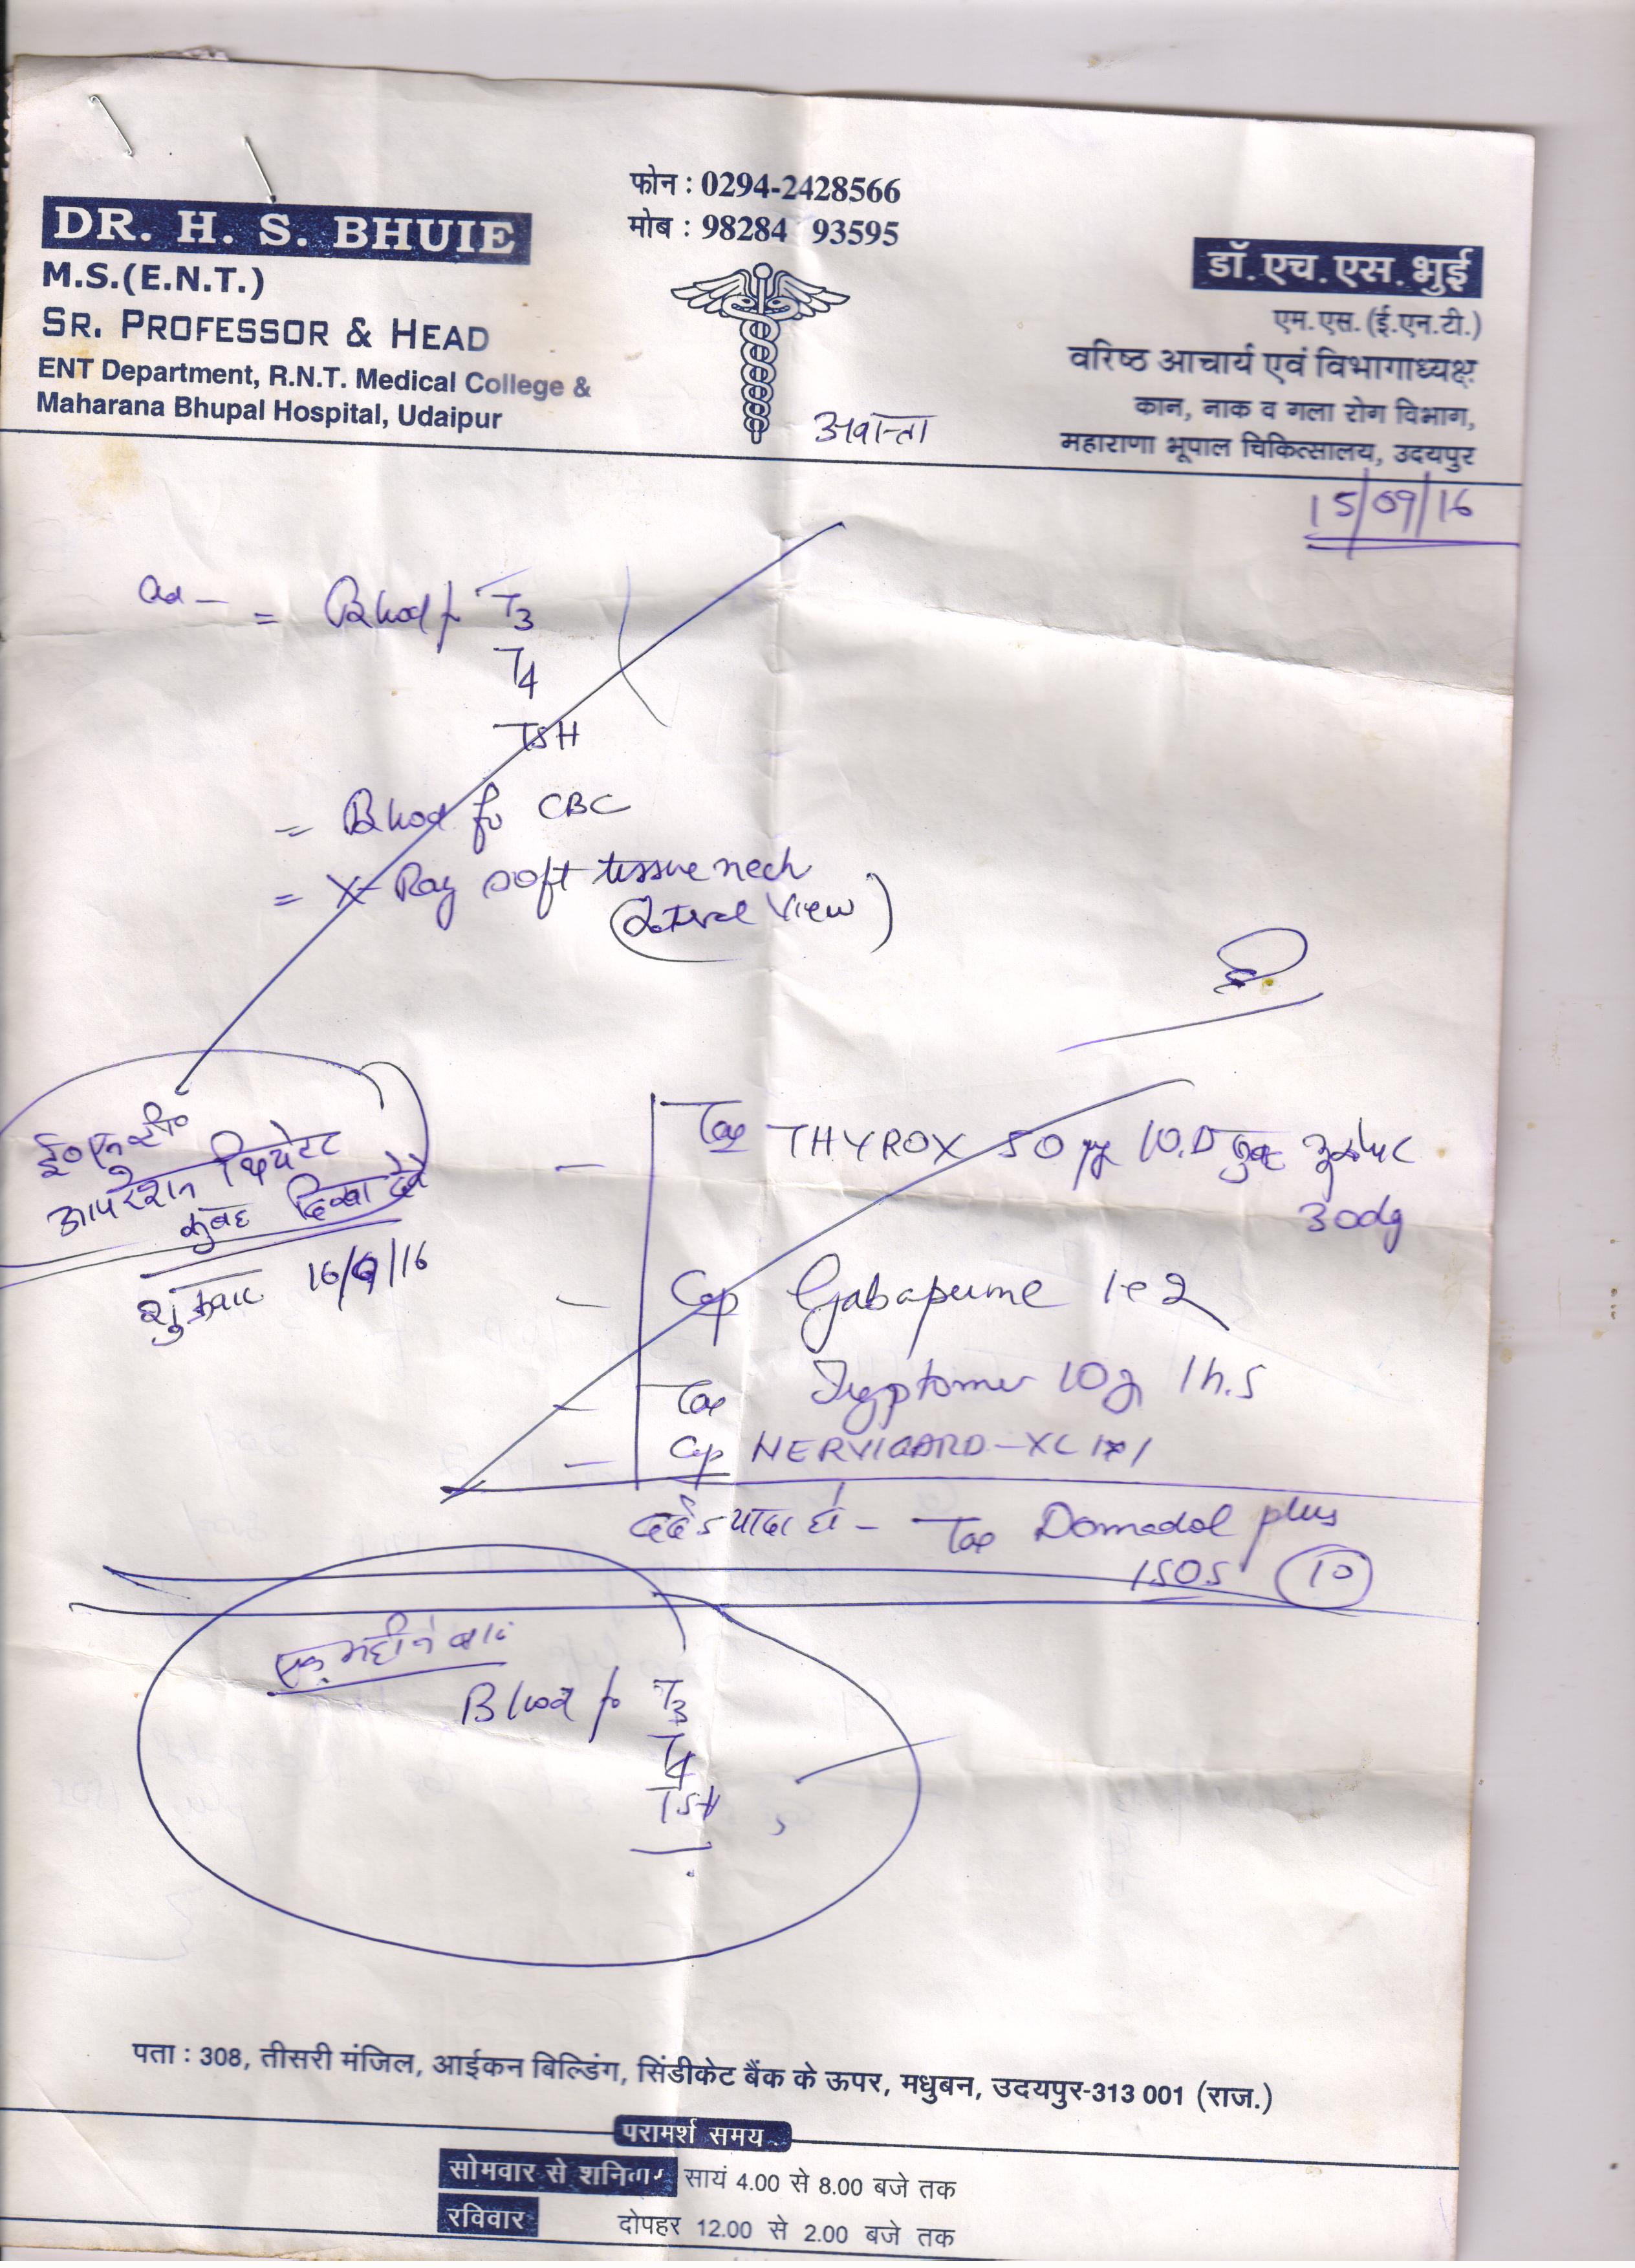 फोन : 0294-2428566
मोब : 98284 93595
DR. H. S. BHUIE
M.S.(E.N.T.)
SR. PROFESSOR & HEAD
ENT Department, R.N.T. Medical College &
Maharana Bhupal Hospital, Udaipur
डॉ. एच. एस. भुई
एम. एस. (ई.एन.टी.)
वरिष्ठ आचार्य एवं विभागाध्यक्ष
कान, नाक व गला रोग विभाग,
महाराणा भूपाल चिकित्सालय, उदयपुर
15/09/16
= Blood for T3
T4
TSH
= Blood for CBC
= X-Ray soft tissue neck
(Lateral View)
ई०एन०टी०
आपरेशन थियेटर
सुबह दिखा देवे
शुक्रवार 16/9/16
- Tab THYROX 50
30 dg
- Cap 1e2
- Tab 10g 1h.s
- Cap
दर्द ज्यादा हो - Tab Domadol plus
1 SOS (10)
एक महीने बाद
Blood for T3
T4
TSH
पता : 308, तीसरी मंजिल, आईकन बिल्डिंग, सिंडीकेट बैंक के ऊपर, मधुबन, उदयपुर-313 001 (राज.)
परामर्श समय
सोमवार से शनिवार सायं 4.00 से 8.00 बजे तक
रविवार दोपहर 12.00 से 2.00 बजे तक